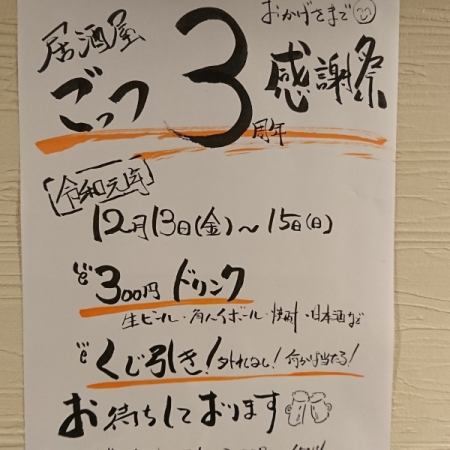 おかげさまで
居酒屋
ごっつ 3周年 感謝祭
令和元年
12月13日(金)～15日(日)
300円 ドリンク
生ビール・角ハイボール・焼酎・日本酒など
くじ引き! 外れなし! 何かが当たる!
お待ちしております